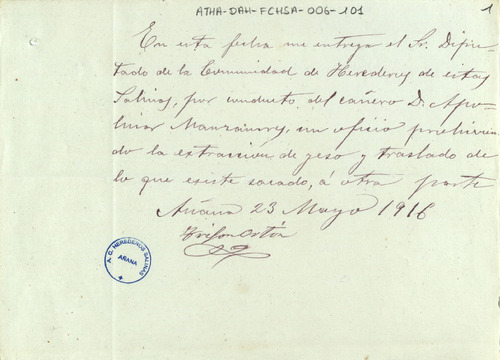 ATHA-DAH-FCHSA-006-101
1
En esta fecha me entrega el Sr. Dipu-
tado de la Comunidad de Herederos de estas
Salinas, por conducto del cañero D. Apo-
linar Manzanares, un oficio prohivien
do la extracción de yeso y traslado de
lo que existe sacado, á otra parte
Añana 23 Mayo 1916
Ortiz
A. C. HEREDEROS SALINAS
AÑANA